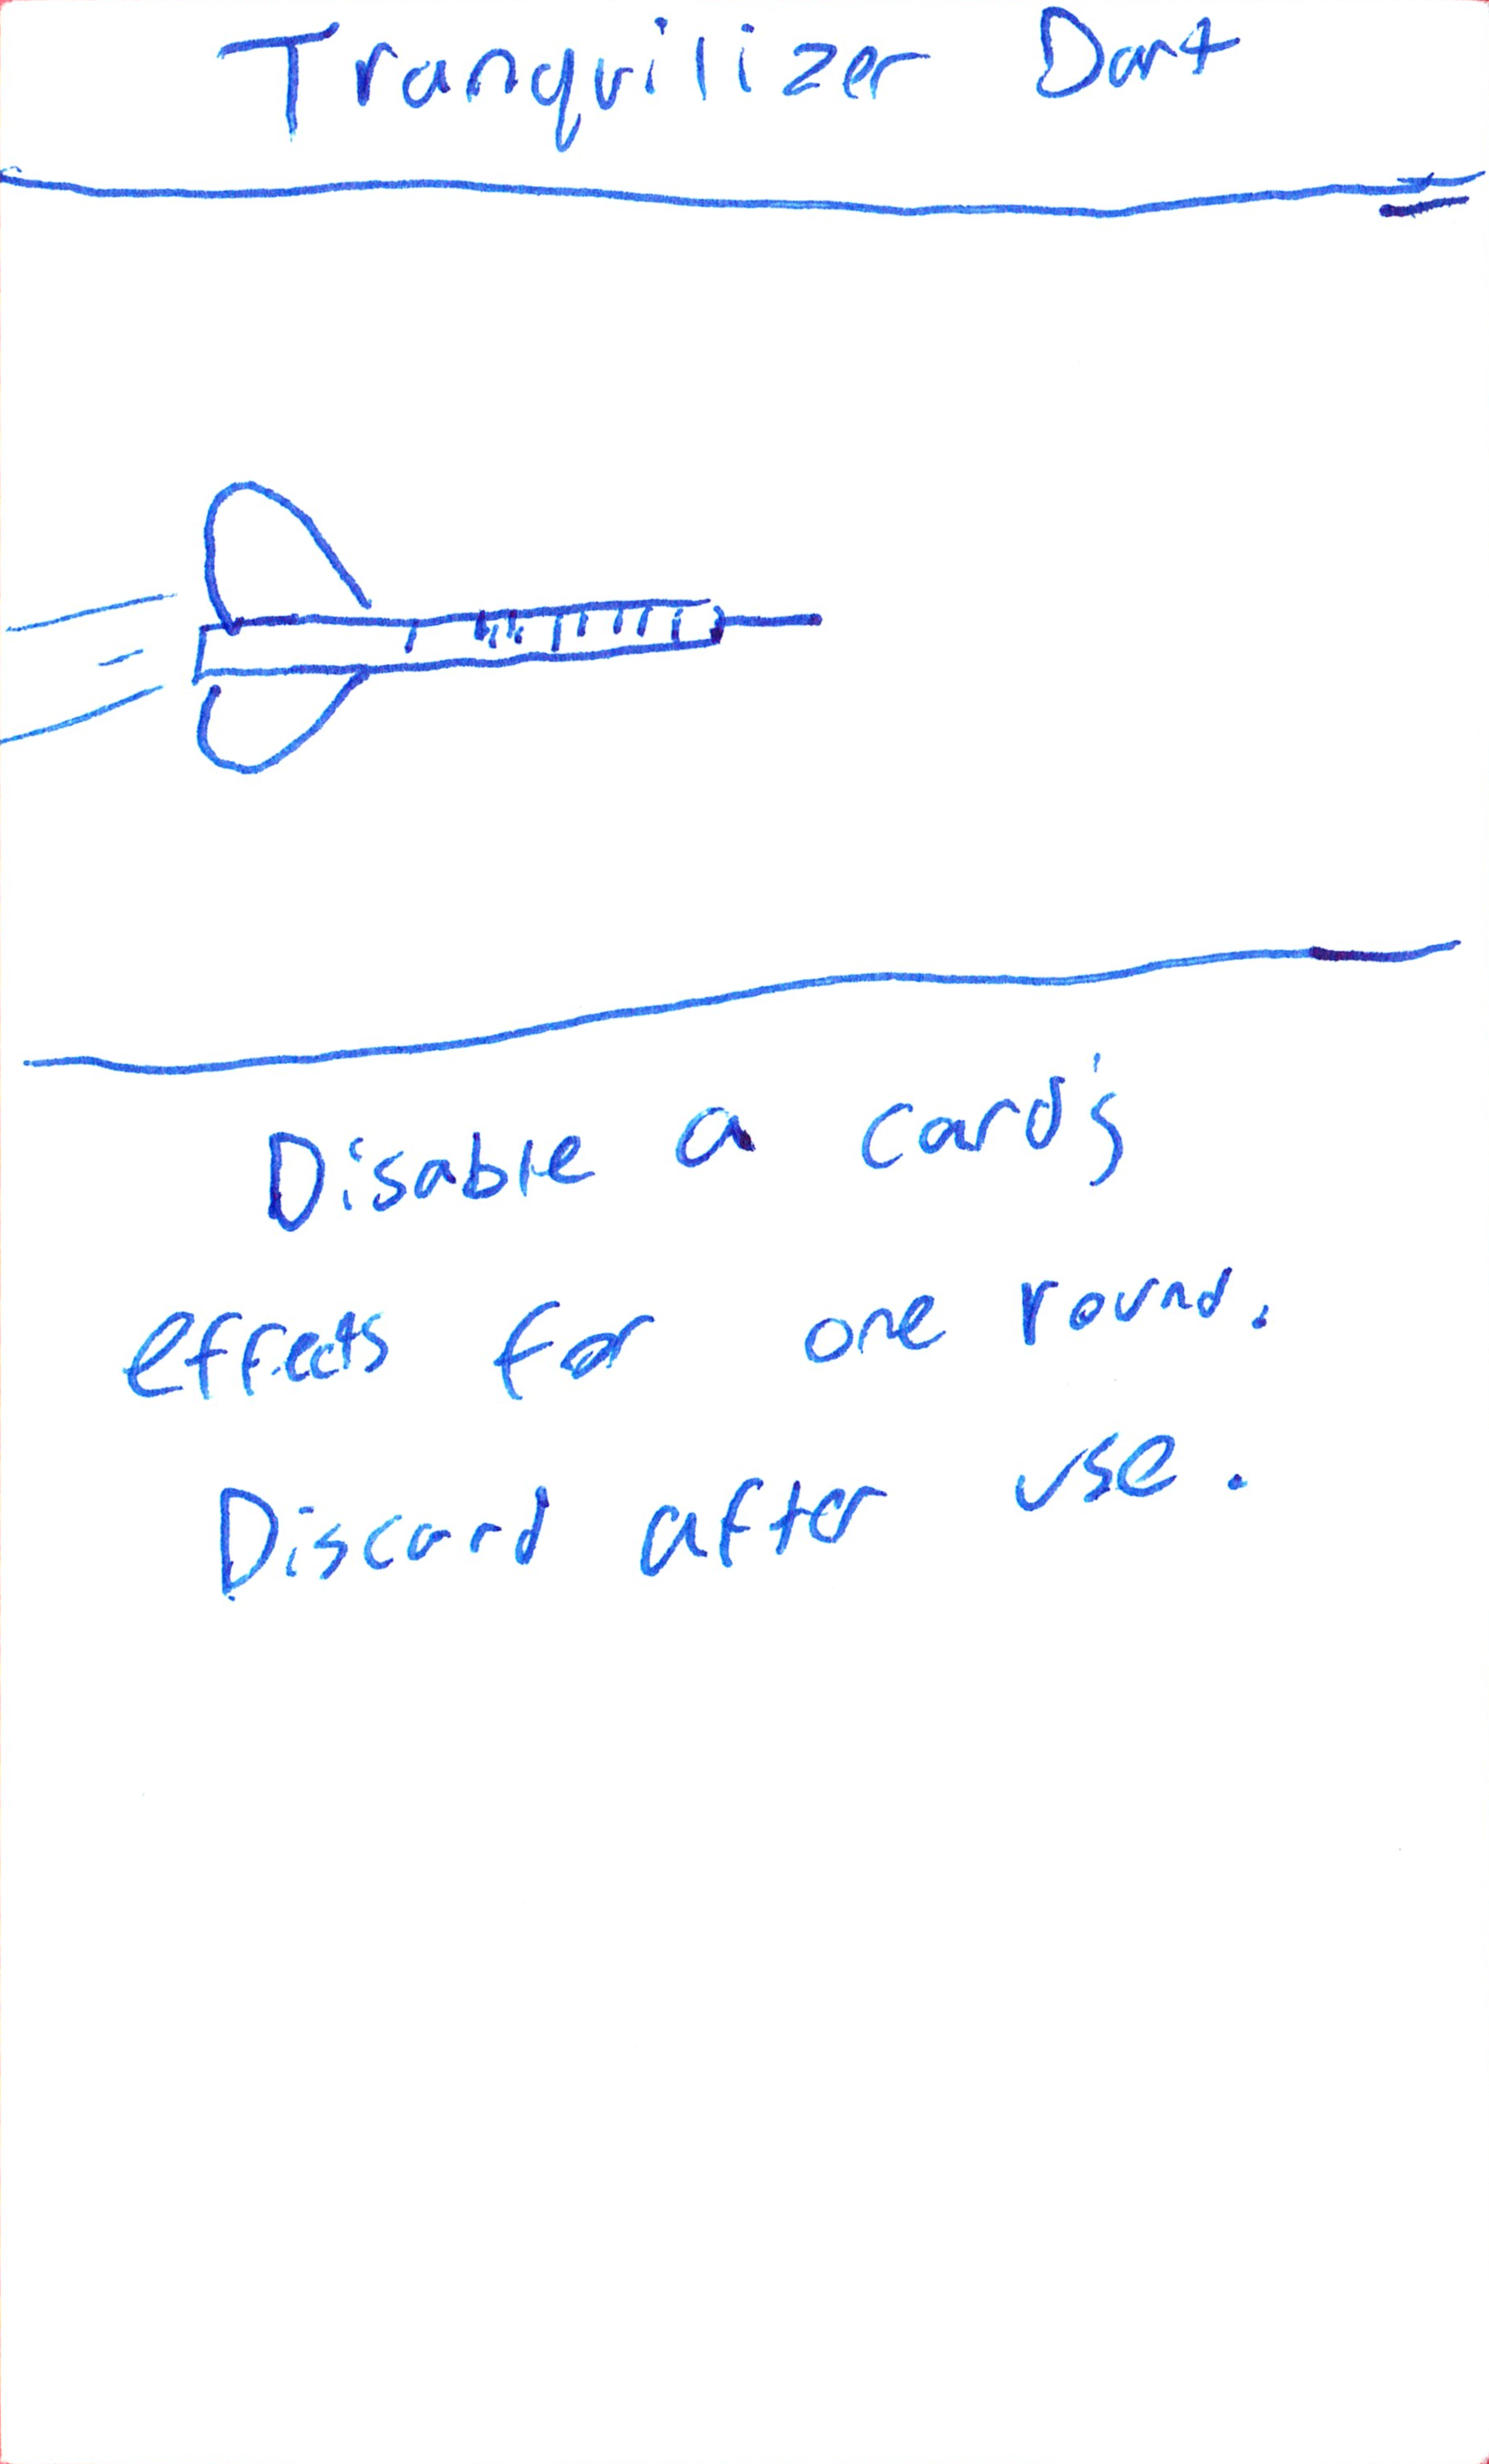 Tranquilizer Dart
Disable a card's
effects for one round.
Discard after use.